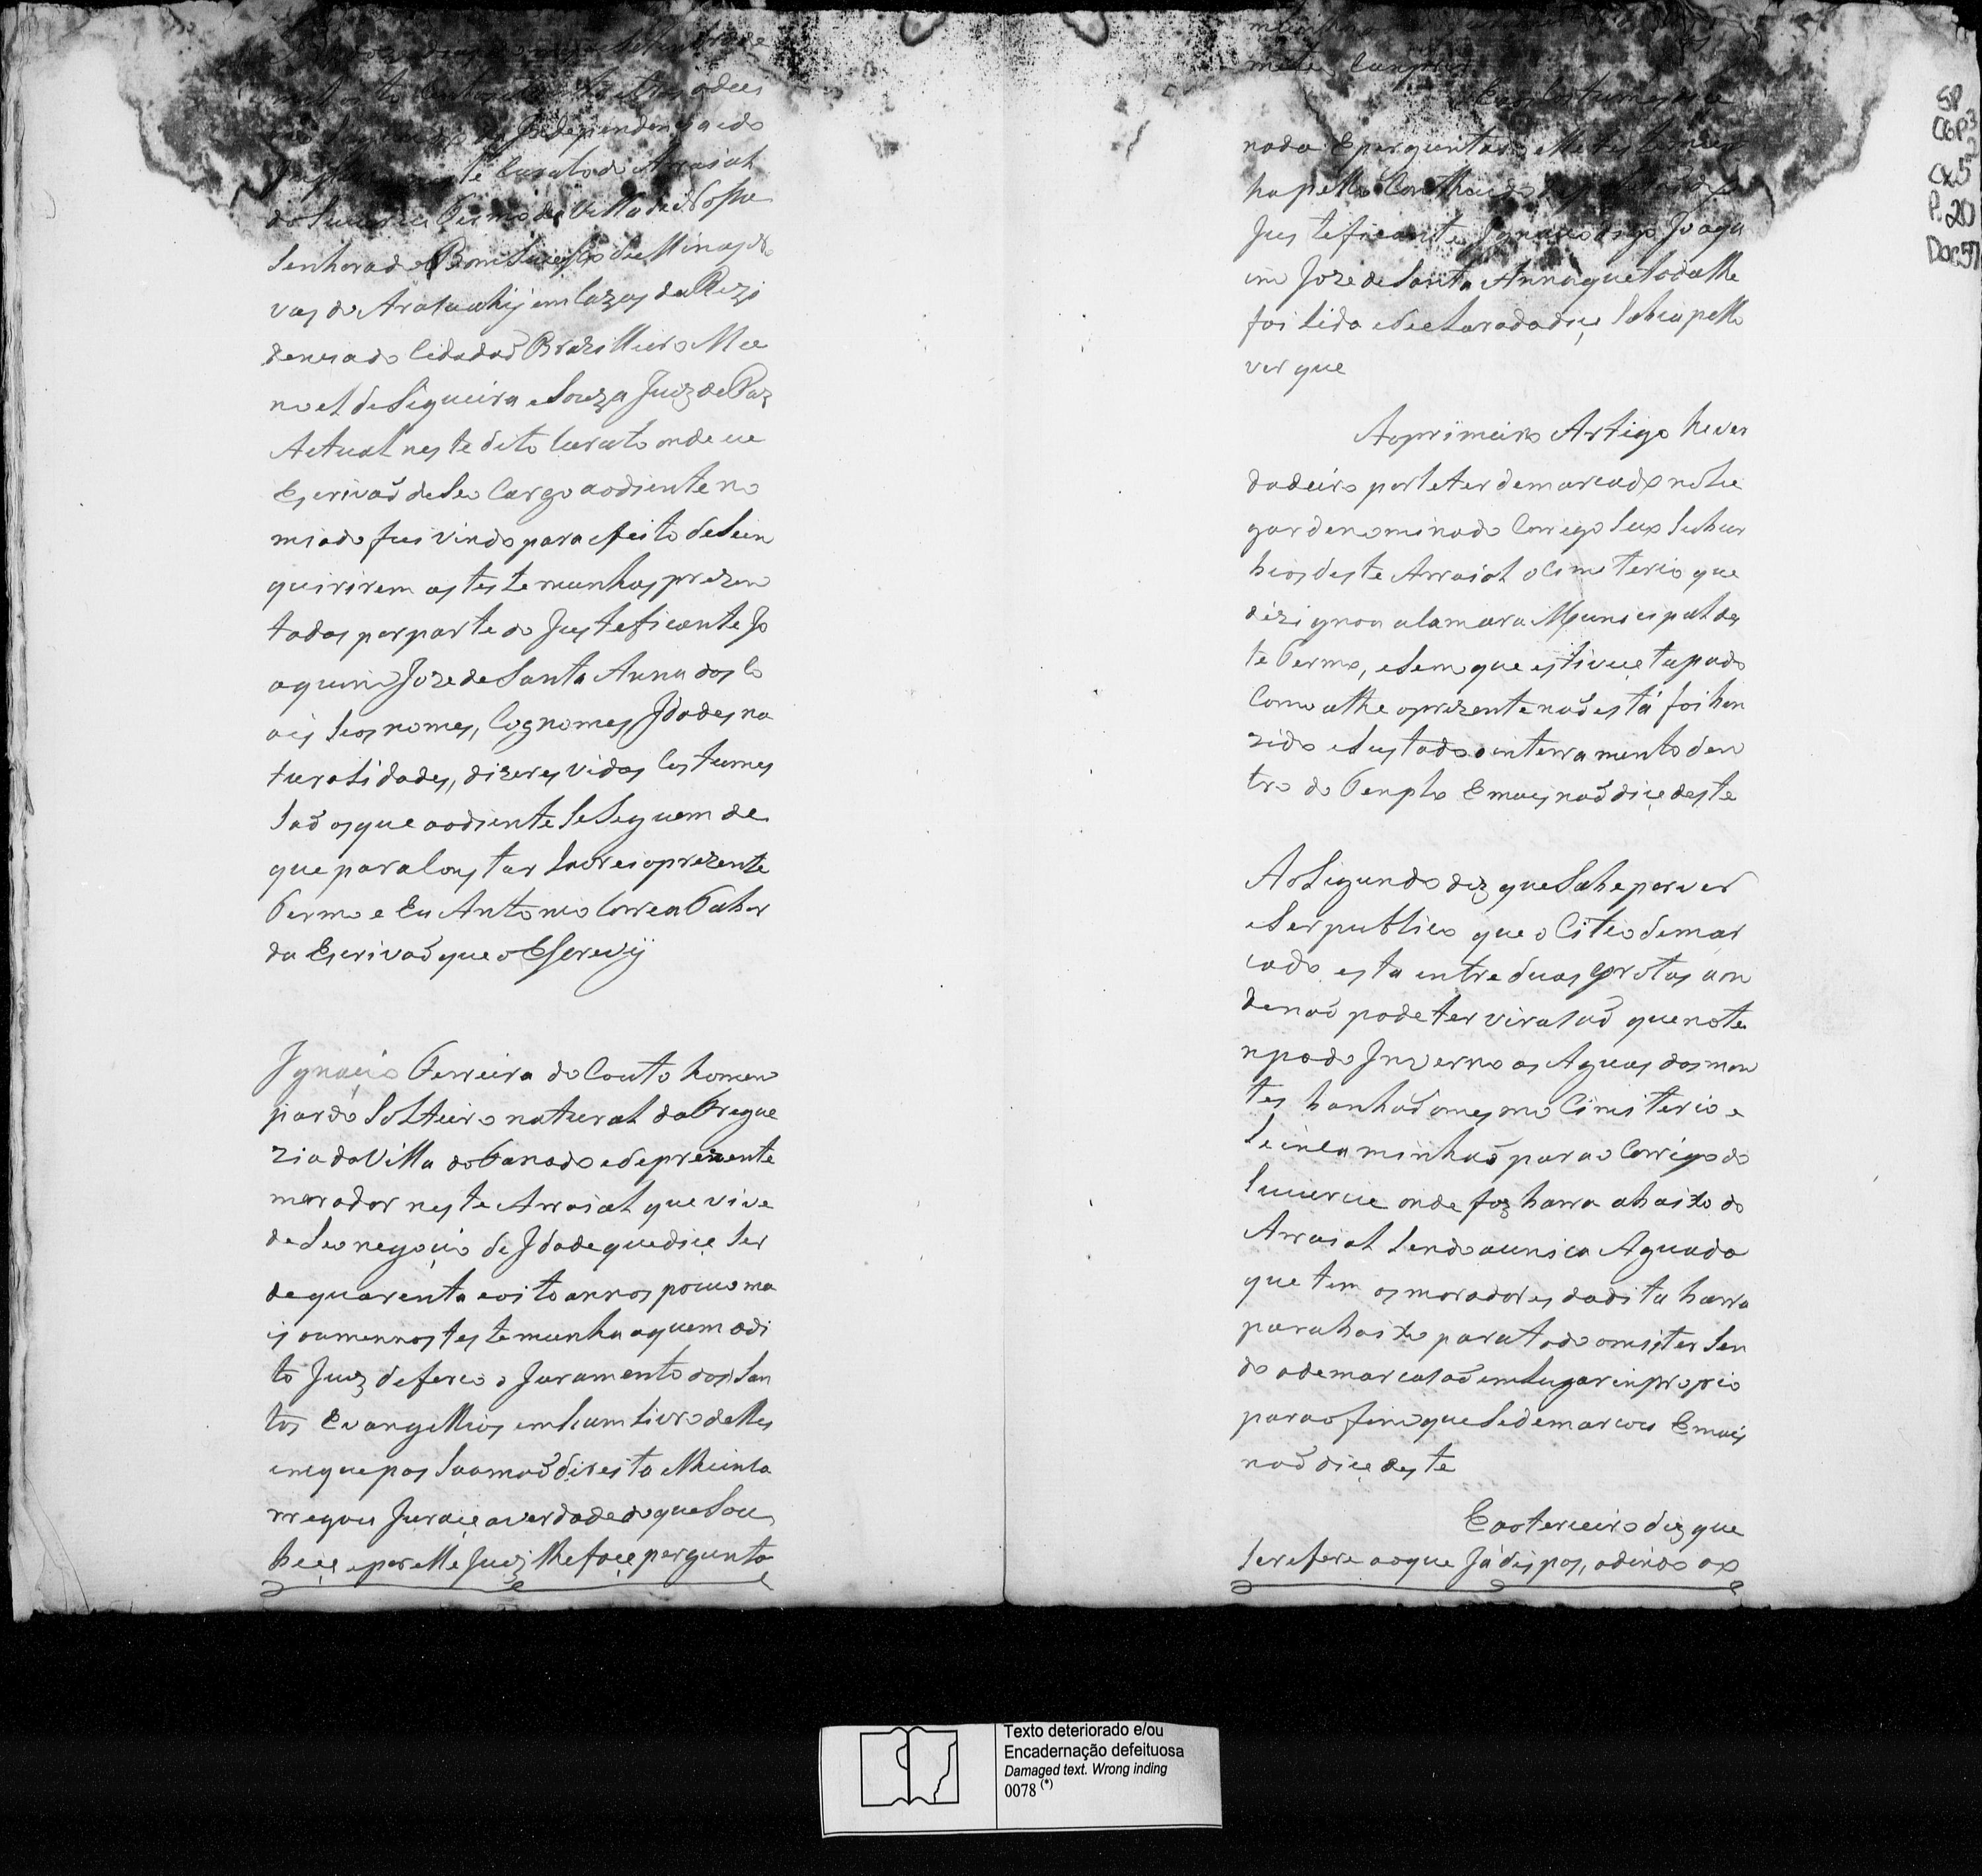 Independencia e do
te Curato do Arraial
do Sucuriu Termo da Villa de Nossa
Senhora do Bom Sucesso de Minas No
vas do Arasuahij em Cazas da Rezi
dencia do Cidadaõ Brazilleiro Ma
noel de Siqueira e Souza Juiz de Paz
Actual neste dito Curato onde eu
Escrivaõ de Seo Cargo aodiente no
miado fui vindo para efeito de Sein
quirirem as testemunhas prezen
tadas por parte do Justeficante Jo
aquim Joze de Santa Anna dos co
ais Seos nomes, Cognomes, Jdades, na
turalidades, dizeres vidas Costumes
Saõ os que aodiente Se Seguem de
que para Constar Lavrei o prezente
Termo e Eu Antonio Correa Tabor
da Escrivaõ que o Escrevÿ
Ignacio Ferreira do Couto homem
pardo Solteiro natural da Fregue
zia da Villa do Fanado e de prezente
morador neste Arraial que vive
de Seo negocio de Jdade que diçe Ser
de quarenta e oito annos pouco ma
is ou mennos testemunha a quem o di
to Juiz deferio o Juramento dos San
tos Evangellios em hum Livro delles
em que pos Sua maõ direita e lhe inca
rregou Juraçe a verdade do que Sou
beçe e por elle Juiz lhe foçe pergunta
meteu Cumprir
E aos Costumes diçe
nada E perguntado elle testemun
ha pello Conthiudo
Justeficante Ignacio digo Joaqu
im Joze de Santa Anna que toda lhe
foi Lida e declarada diçe Sabia pello
ver que
Ao primeiro Artigo he ver
dadeiro por le ter demarcado no Lu
gar denominado Corrego Seco Subur
bios deste Arraial o Cimeterio que
dezignou a Camara Municipal des
te Termo, e Sem que estiveçe tapado
Como athe o prezente naõ está foi ben
zido e Sustado o interramento den
tro do Templo E mais naõ diçe deste
Ao Segundo diz que Sabe por ver
e Ser publico que o Citio demar
cado esta entre duas grotas aon
de naõ pode ter viraçaõ que no te
npo do Inverno as Aguas dos mon
tes banhaõ o mesmo Cimiterio e
Se incaminhaõ para o Corrigo do
Sucuriu onde faz barra abaixo do
Arraial Sendo a unica Aguada
que tem os moradores da dita barra
para baixo para todo o mister Sen
do a demarcaçaõ em Lugar inproprio
para o fim que Se demarcou E mais
naõ diçe deste
E ao terceiro diz que
Se refere ao que Já dis pos, adindo ao
SP
CGP3
CX5
P.20
Doc51
Texto deteriorado e/ou
Encadernação defeituosa
Damaged text. Wrong inding
0078 (*)